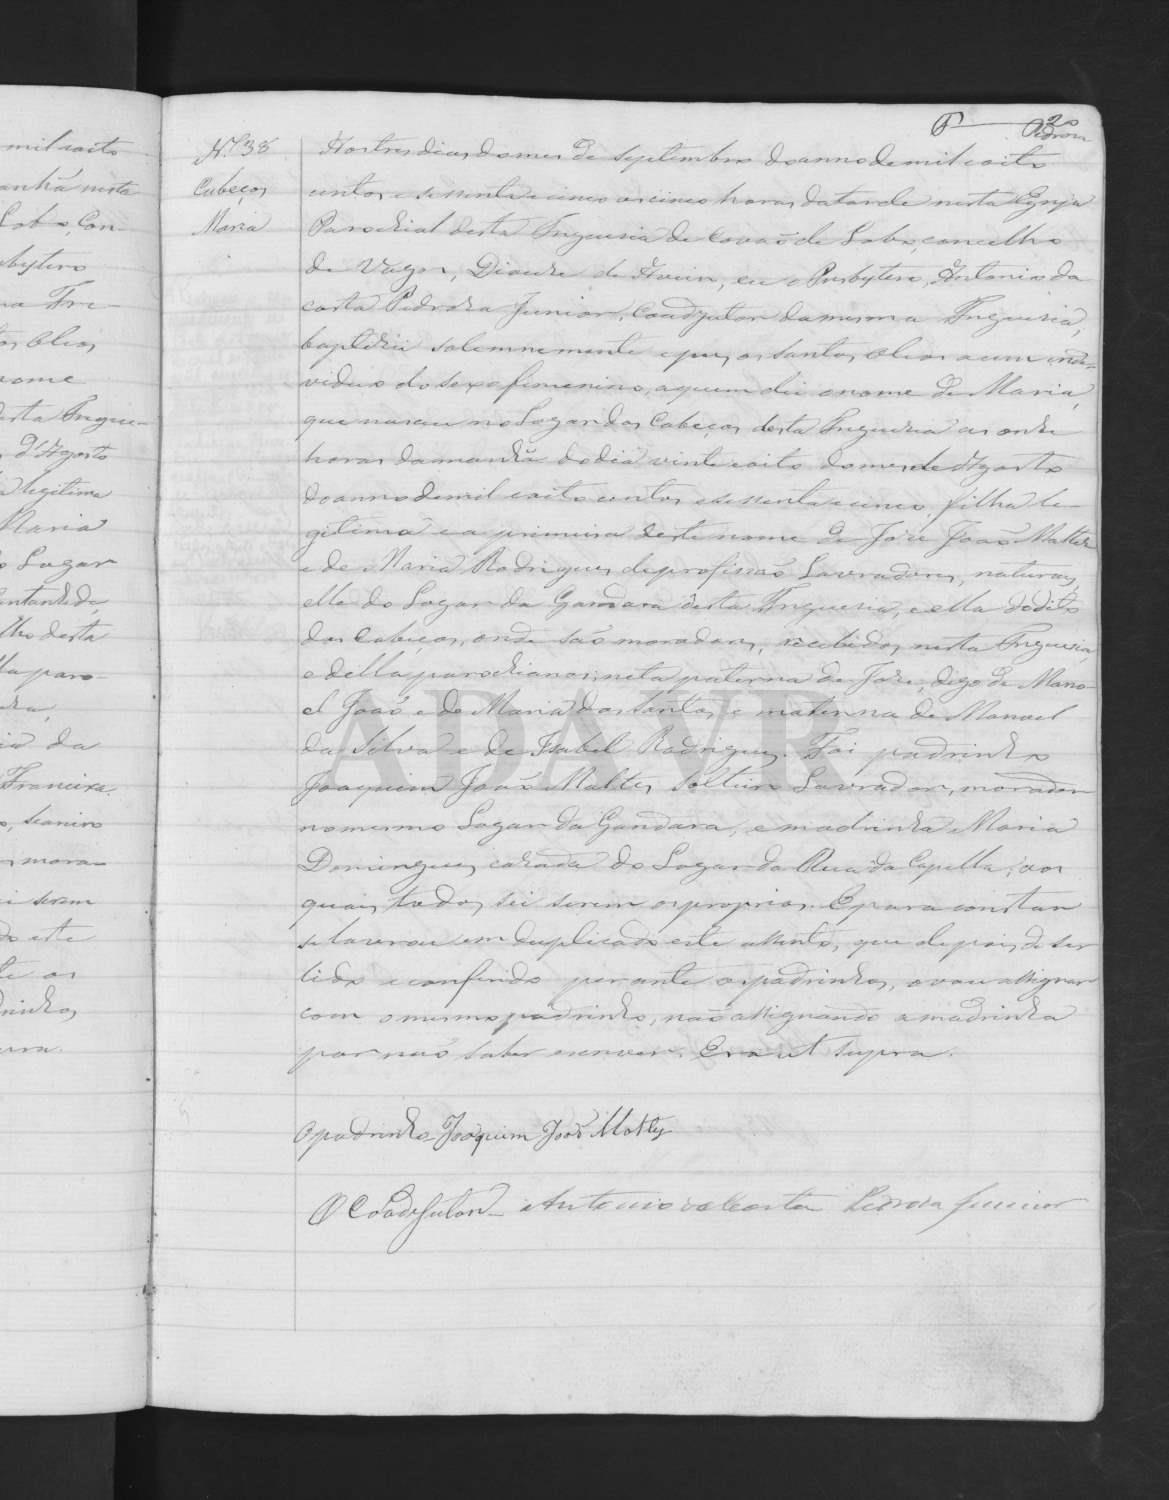 20
Pedroza
N.º 38
Cabeços
Maria
Aos tres dias do mes de Septembro do anno de mil e oito
centos e sessenta e cinco as cinco horas da tarde nesta Egreja
Parochial desta Freguesia de Covão de Lobo, concelho
de Vagos, Diocese de Aveiro, eu o Presbytero, Antonio da
Costa Pedroza Junior, Coadjutor da mesma Freguesia,
baptizei solemnemente e puz os santos oleos a um indi-
viduo do sexo femenino, a quem dei o nome de Maria,
que nasceu no Logar dos Cabeços desta Freguesia as onze
horas da manhã do dia vinte e oito do mes de Agosto
do anno de mil e oito centos e sessenta e cinco, filha le-
gitima e a primeira deste nome de Joze João Maltez
e de Maria Rodrigues, de profissão Lavradores, naturaes,
elle do Logar da Gandara desta Freguesia, e ella do dito
dos Cabeços, onde são moradores, recebidos nesta Freguesia,
e della parochianos; neta paterna de Joze, digo de Mano-
el João e de Maria dos Santos, e materna de Manoel
da Silva e de Isabel Rodrigues. Foi padrinho
Joaquim João Maltez, solteiro Lavrador, morador
no mesmo Logar da Gandara, e madrinha Maria
Domingues, cazada do Logar da Rua da Capella, aos
quaes todos sei serem os proprios. E para constar
se lavrou em duplicado este assento, que depois de ser
lido e conferido perante os padrinhos, o vou assignar
com o mesmo padrinho, não assignando a madrinha
por não saber escrever. Era ut supra.
O padrinho Joaquim João Maltez
O Coadjutor Antonio da Costa Pedroza Junior
ADAVR
mil e oito
anhã nesta
Lobo, Con-
sbytero
ma Fre-
os oleos
nome
desta Fregue-
d'Agosto
legitima
Maria
Logar
antanhede
lho desta
lla paro-
ia da
Francisco
mora-
i serem
do este
te os
drinhos